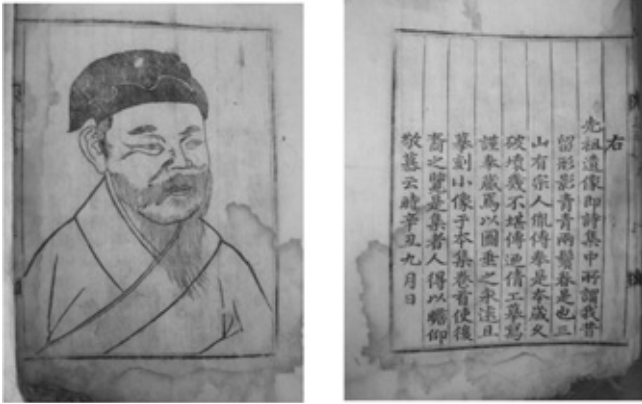 右
先祖遺像即詩集中所謂我昔
留形影青青兩鬢春是也三
山有宗人僦傳奉是本歲久
破壞幾不堪傳迺倩工摹寫
謹奉藏焉以圖垂之永遠且
摹刻小像于本集卷首使後
裔之覽是集者人得以瞻仰
敬慕云時辛丑九月日